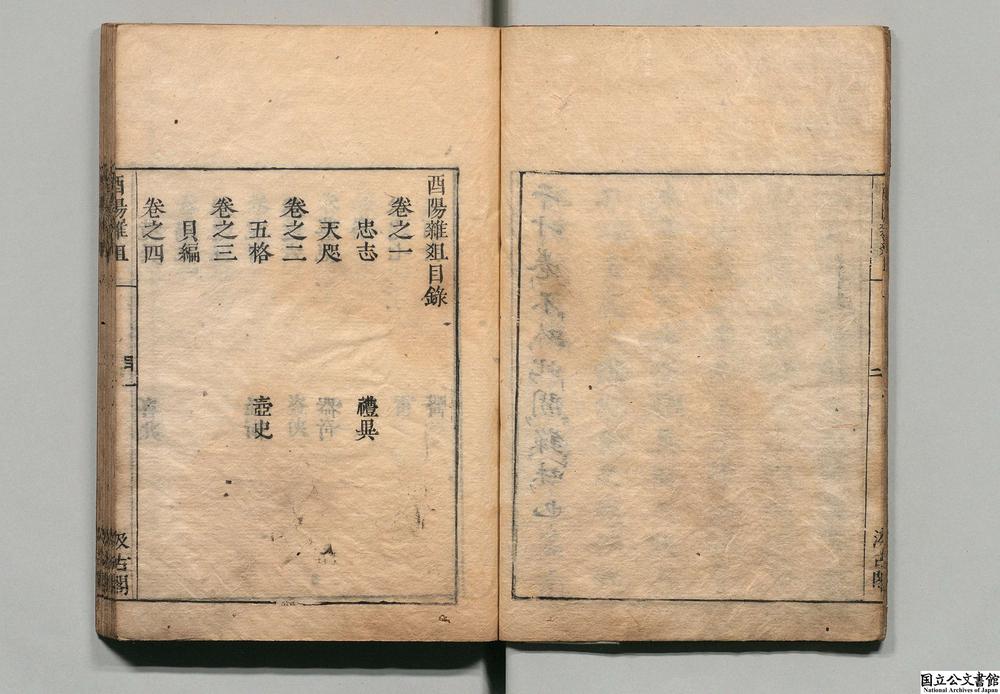 酉陽雜俎目錄
卷之一
忠志 禮異
天咫
卷之二
五格 壺史
卷之三
貝編
卷之四
酉陽雜俎
汲古閣
二
汲古閣
国立公文書館
National Archives of Japan